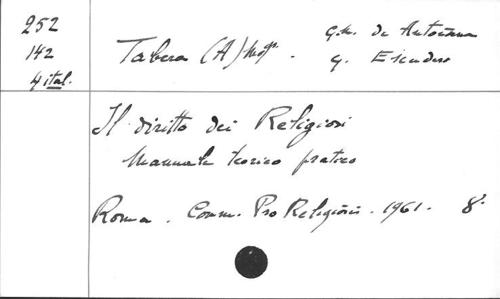 252
142
4 ital.
Tabera (A) Mgr. G.M. de Antoñana
G. Escudero
Il diritto dei Religiosi
Manuale teorico pratico
Roma. Comm. Pro Religiosis. 1961. 8°